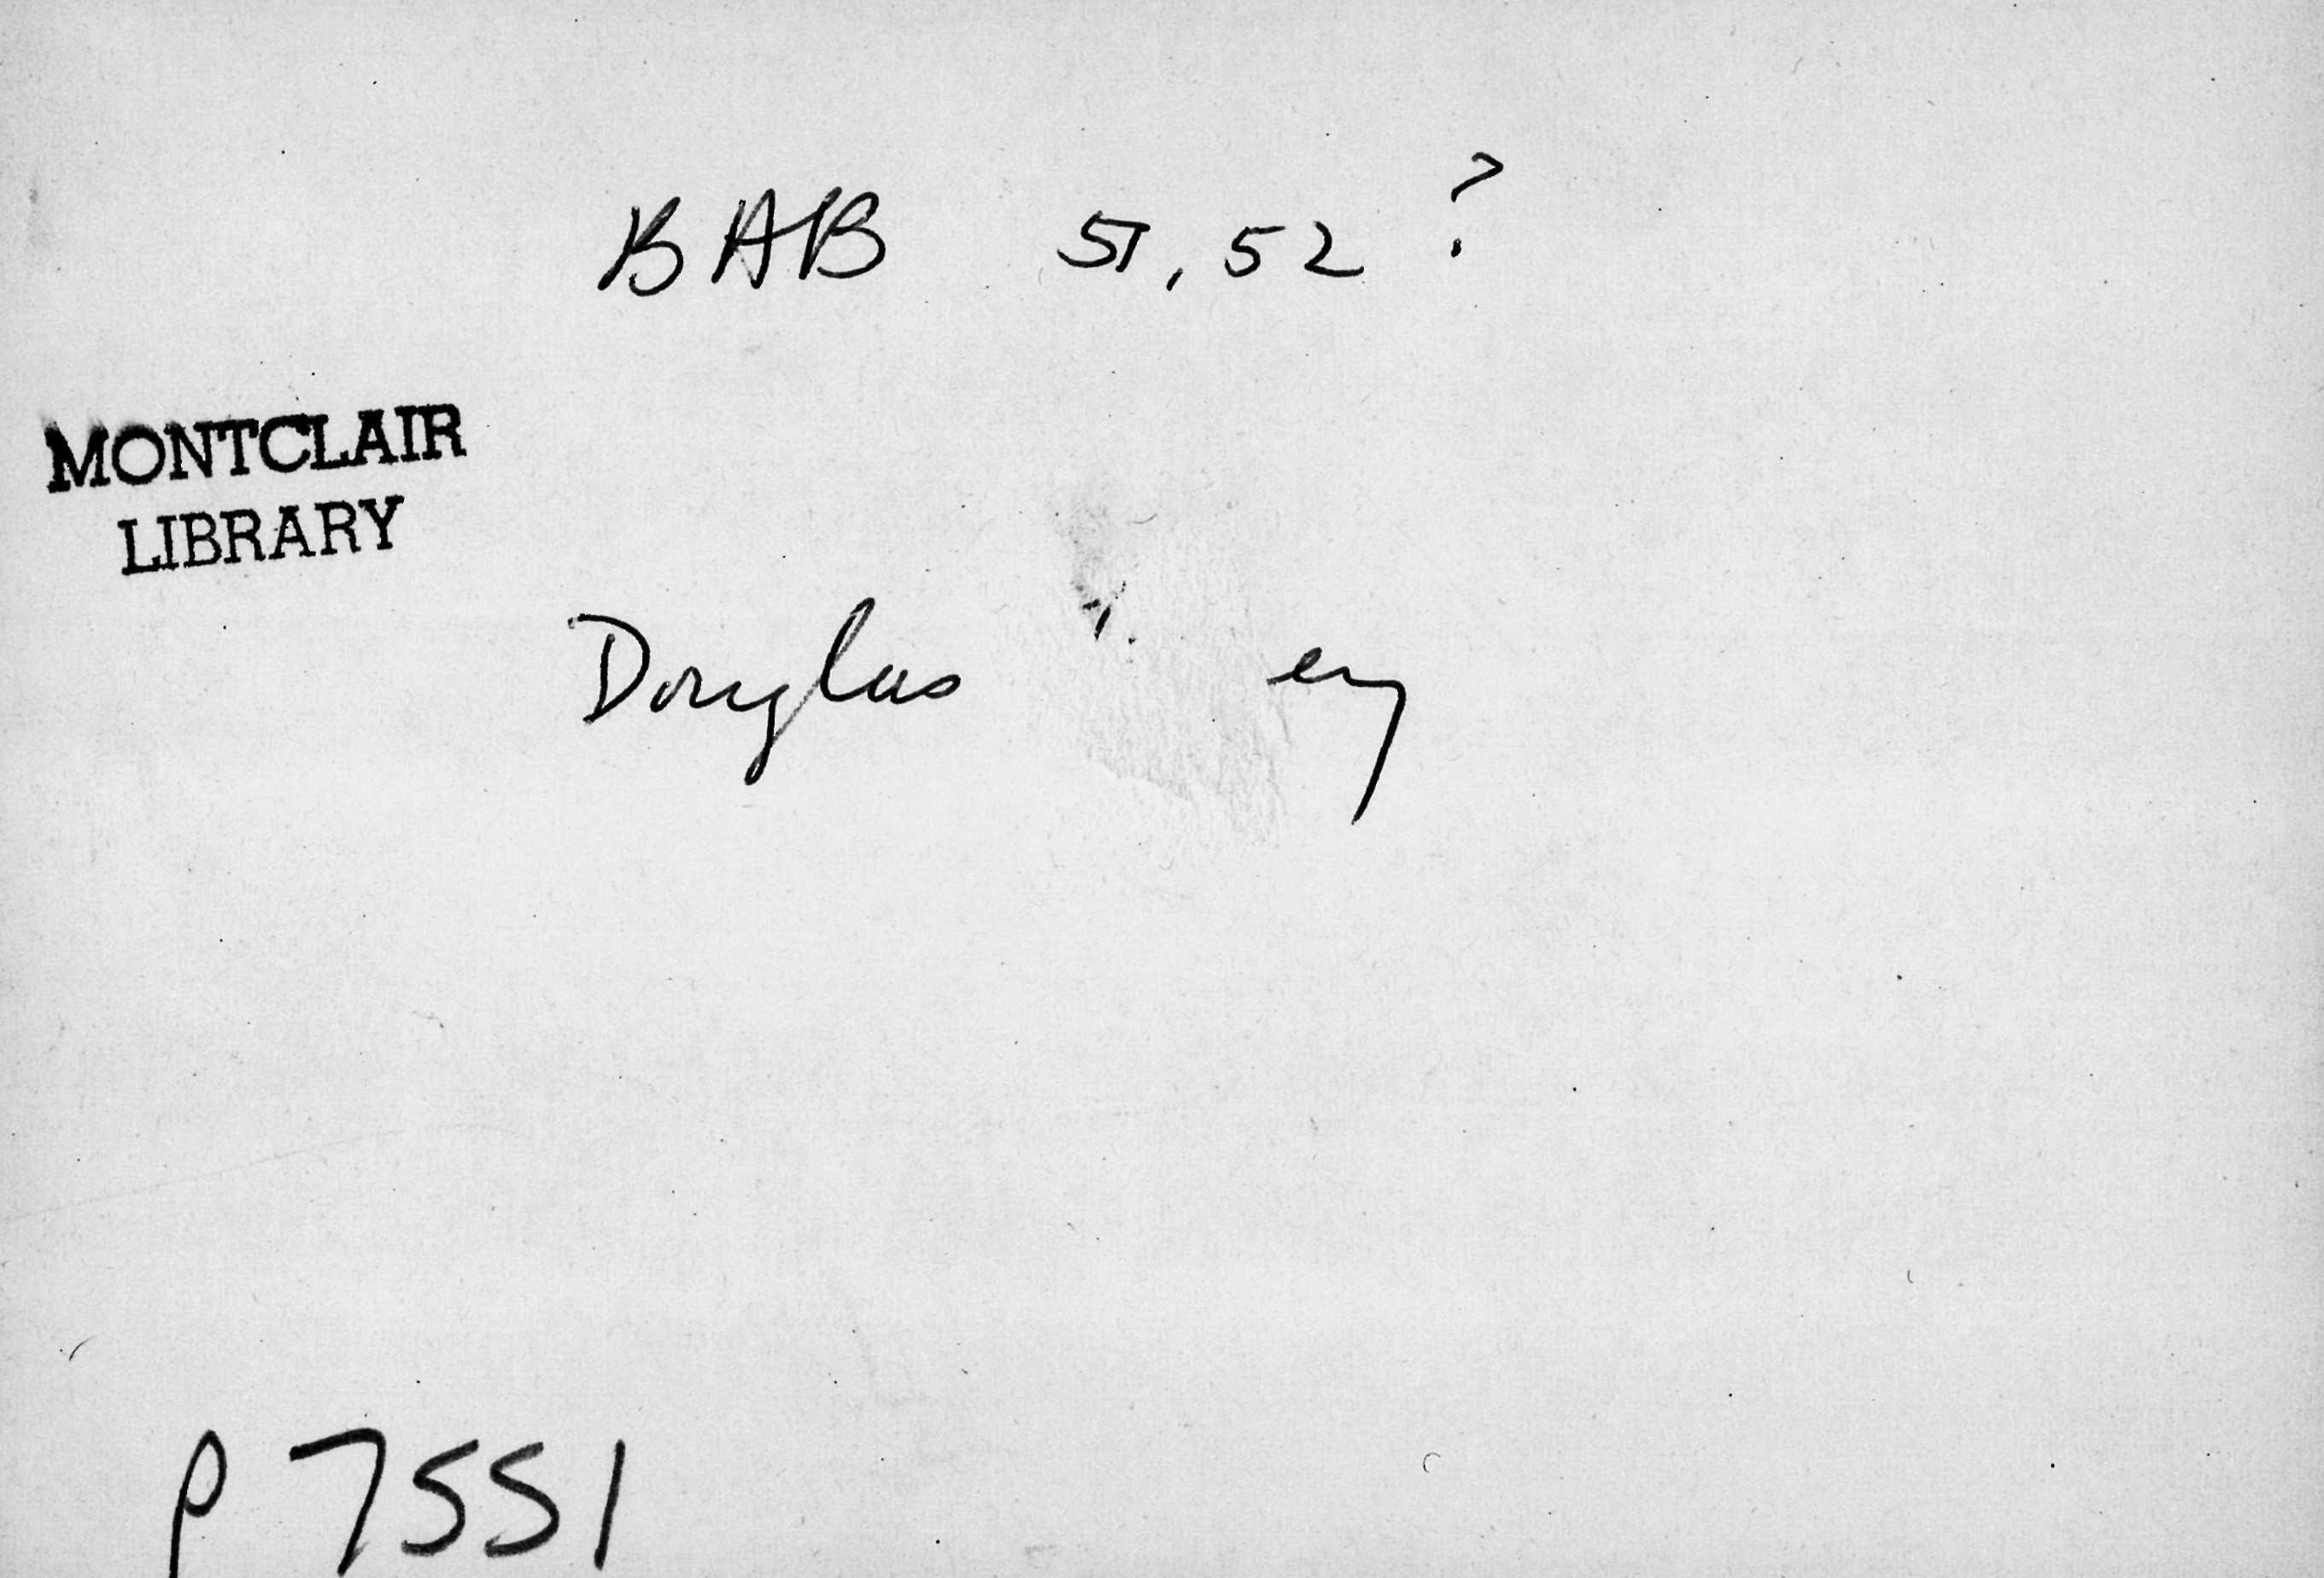 BAB 51, 52 ?
MONTCLAIR
LIBRARY
Douglas
P 7551